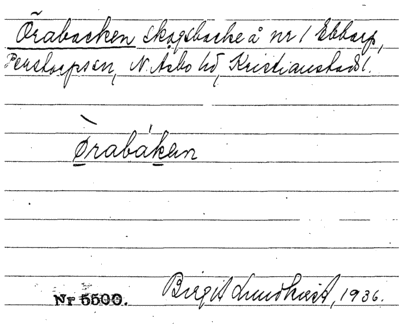 Örabacken skogsbacke å nr 1 Ebbarp,
Perstorpssn, N. Åsbo hd, Kristianstads l.
Òrabáken
Nr 5500.
Birgit Lundkvist, 1936.